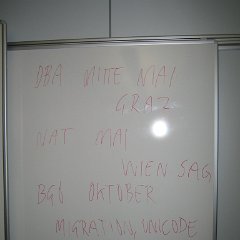 DBA MITTE MAI
GRAZ
NAT MAI
WIEN SAG
BGÖ OKTOBER
MIGRATION, UNICODE